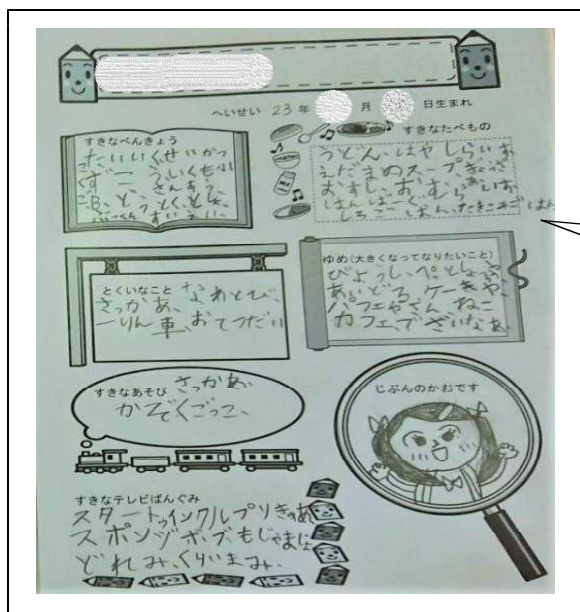 へいせい 23年 月 日生まれ
すきなべんきょう
たいいくせいかつ
ずこう
さんすう
どうとく、としょ
すきなたべもの
うどん、はやしらいす
えだまめスープぎょうざ
おすし、おむらいす
はんばーぐ、
しろごはん、たきこみごはん
とくいなこと
なわとび、
さっかあ、
一りん車、おてつだい
ゆめ(大きくなってなりたいこと)
びようし、ぺっとしょっぷ
あいどる、ケーきや、
パフェやさん、ねこ
カフェ、でざいなあ、
すきなあそび
さっかあ、
かぞくごっこ、
じぶんのかおです
すきなテレビばんぐみ
スタートゥインクルプリきゅあ
スポンジボブ、もじゃまじょ
どれみ、くりいまみ、